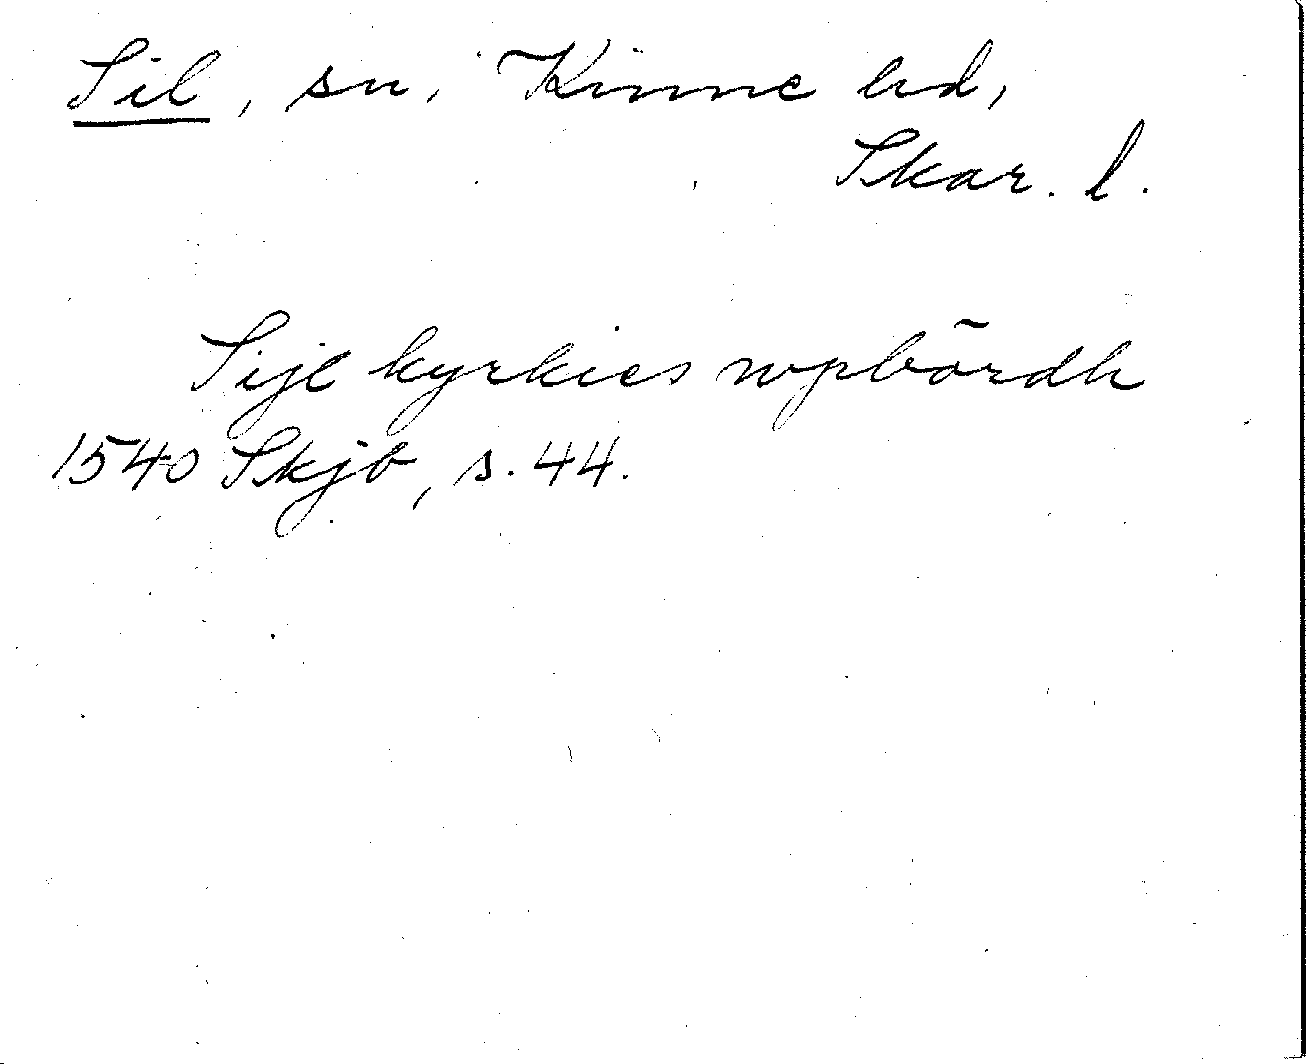 Sil, sn, Kinne hd,
Skar. l.
Sije kyrkies wpbördh
1540 Skjb, s. 44.